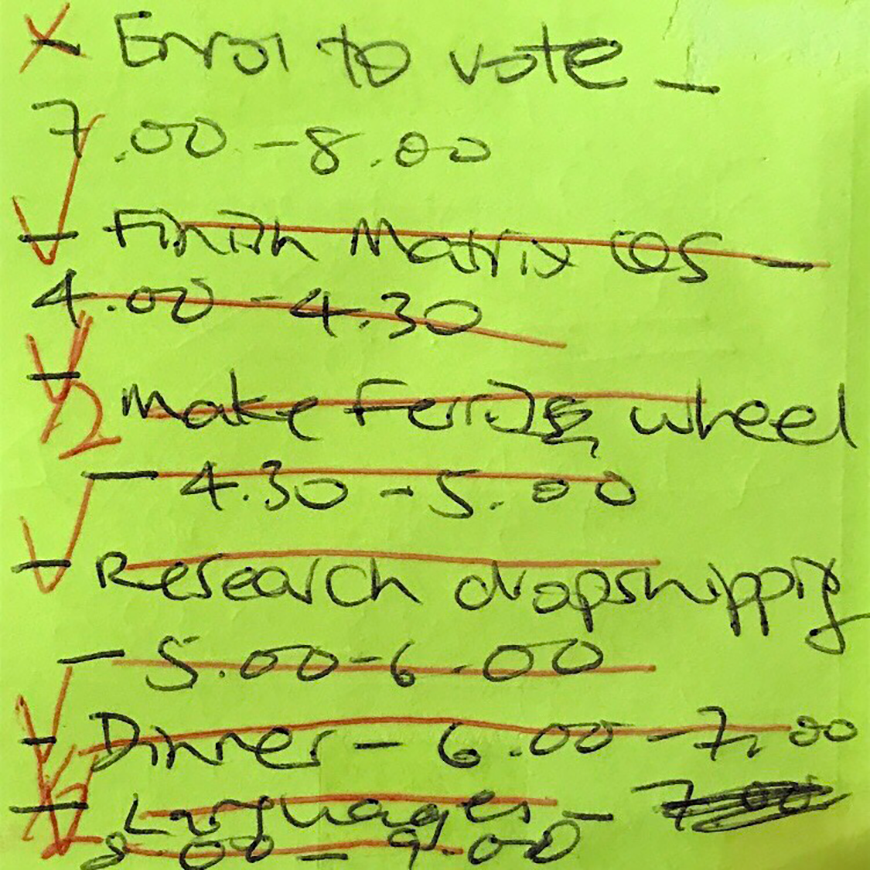 Enrol to vote -
7.00-8.00
- Finish Matrix Qs -
4.00-4.30
- Make Ferris wheel
- 4.30-5.00
- Research dropshipping
- 5.00-6.00
- Dinner - 6.00-7.00
- Languages - 7.00
8.00-9.00